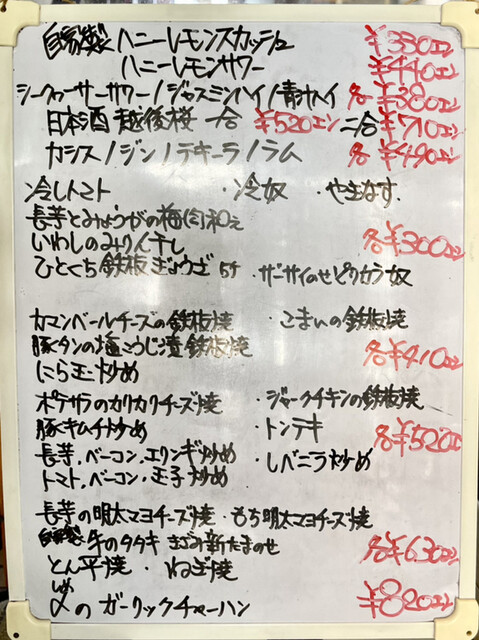 自家製ハニーレモンスカッシュ ¥330エン
ハニーレモンサワー ¥440エン
シークヮーサーサワー/ジャスミンハイ/青汁ハイ 各¥380エン
日本酒 越後桜 一合 ¥520エン 二合 ¥710エン
カシス/ジン/テキーラ/ラム 各¥490エン
冷しトマト ・冷奴 ・やきなす
長芋とみょうがの梅肉和え
いわしのみりん干し 各¥300エン
ひとくち鉄板ぎょうざ 5ヶ ・ザーサイのせピリカラ奴
カマンベールチーズの鉄板焼 ・こまいの鉄板焼
豚タンの塩こうじ漬鉄板焼 各¥410エン
にら玉炒め
ポテサラのカリカリチーズ焼 ・ジャークチキンの鉄板焼
豚キムチ炒め ・トンテキ 各¥520エン
長芋、ベーコン、エリンギ炒め ・レバニラ炒め
トマト、ベーコン、玉子炒め
長芋の明太マヨチーズ焼 ・もち明太マヨチーズ焼
自家製 牛のタタキ きざみ新たまのせ 各¥630エン
とん平焼 ・ねぎ焼
しめ
〆のガーリックチャーハン ¥820エン